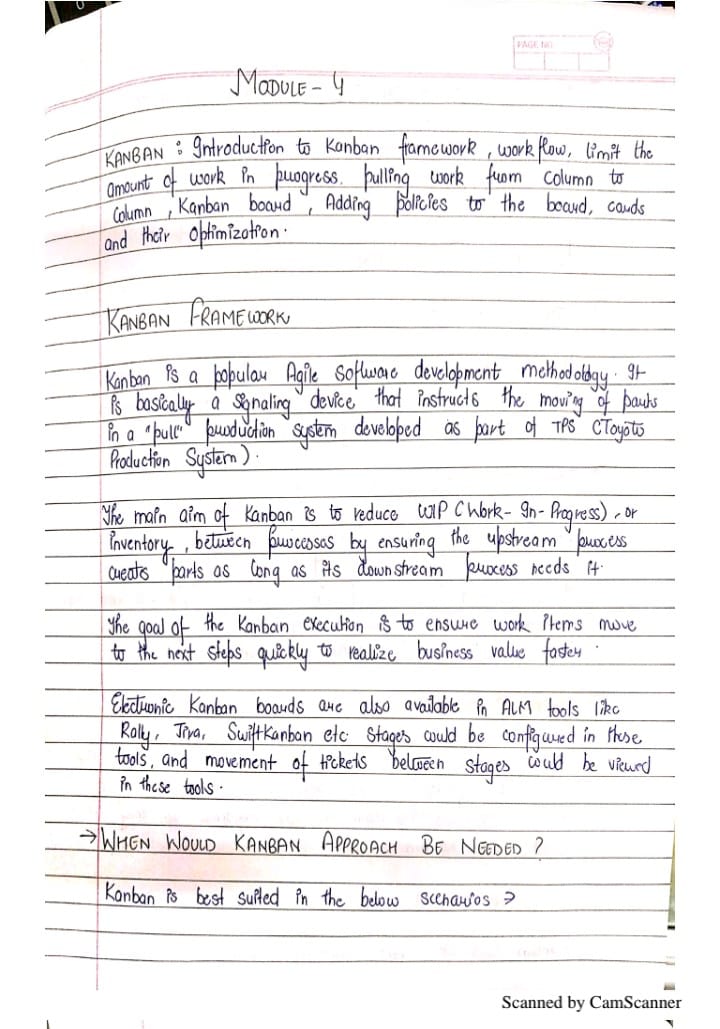 PAGE NO.
MODULE - 4
KANBAN : Introduction to Kanban framework, workflow, limit the
amount of work in progress. pulling work from column to
column, Kanban board, Adding policies to the board, cards
and their Optimization.
KANBAN FRAMEWORK
Kanban is a popular Agile Software development methodology. It
is basically a signaling device that instructs the moving of parts
in a "pull" production system developed as part of TPS (Toyota
Production System).
The main aim of Kanban is to reduce WIP (Work-In-Progress), or
inventory, between processes by ensuring the upstream process
creats parts as long as its downstream process needs it.
The goal of the Kanban execution is to ensure work items move
to the next steps quickly to realize business value faster.
Electronic Kanban boards are also available in ALM tools like
Rally, Jira, SwiftKanban etc. Stages could be configured in these
tools, and movement of tickets between stages could be viewed
in these tools.
→ WHEN WOULD KANBAN APPROACH BE NEEDED ?
Kanban is best suited in the below scenarios →
Scanned by CamScanner